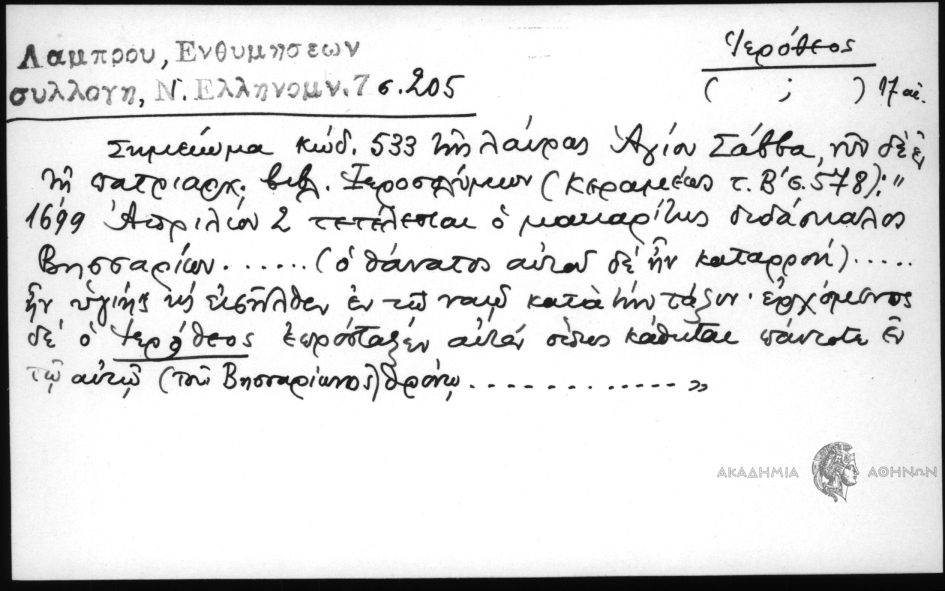 Λαμπρου, Ενθυμησεων
συλλογη, Ν. Ελληνομν. 7 σ. 205
Ἱερόθεος
( ; ) 17 αἰ.
Σημείωμα κώδ. 533 τῆς λαύρας Ἁγίου Σάββα, νῦν δὲ ἐν
τῇ πατριαρχ. βιβλ. Ἱεροσολύμων (Κεραμέως τ. Β' σ. 578): "
1699 Ἀπριλίου 2 τετέλεσται ὁ μακαρίτης διδάσκαλος
Βησσαρίων ...... (ὁ θάνατος αὐτοῦ δὲ ἦν καταρροή) .....
ἦν ὑγιὴς καὶ εἰσῆλθεν ἐν τῷ ναῷ κατὰ τὴν τάξιν· ἐρχόμενος
δὲ ὁ Ἱερόθεος ἐπρόσταξεν αὐτὸν οὕτως κάθηται πάντοτε ἐν
τῷ αὐτῷ (τοῦ Βησσαρίωνος) θρόνῳ .............. »
ΑΚΑΔΗΜΙΑ ΑΘΗΝΩΝ